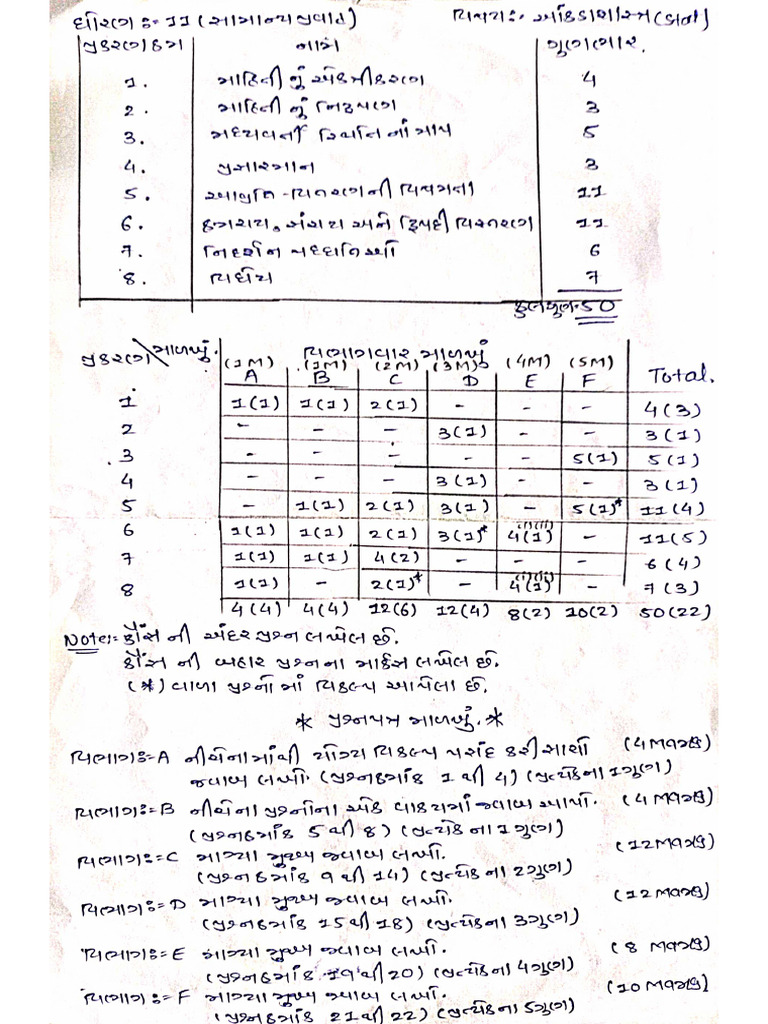 ધોરણઃ- 11 (સામાન્ય પ્રવાહ) વિષયઃ- આંકડાશાસ્ત્ર
પ્રકરણક્રમ નામ ગુણભાર.
1. માહિતીનું એકત્રીકરણ 4
2. માહિતીનું નિરૂપણ 3
3. મધ્યવર્તી સ્થિતિનાં માપ 5
4. પ્રસારમાન 3
5. આવૃત્તિ-વિતરણની વિષમતા 11
6. ક્રમચય, સંચય અને દ્વિપદી વિસ્તરણ 11
7. નિદર્શન પદ્ધતિઓ 6
8. વિધેય 7
કુલગુણ=50
વિભાગવાર માળખું
પ્રકરણ માળખું. (1M) (1M) (2M) (3M) (4M) (5M)
A B C D E F Total.
1 1(1) 1(1) 2(1) - - - 4(3)
2 - - - 3(1) - - 3(1)
3 - - - - - 5(1) 5(1)
4 - - - 3(1) - - 3(1)
5 - 1(1) 2(1) 3(1) - 5(1)* 11(4)
6 1(1) 1(1) 2(1) 3(1)* 4(1) - 11(5)
7 1(1) 1(1) 4(2) - - - 6(4)
8 1(1) - 2(1)* - 4(1) - 7(3)
4(4) 4(4) 12(6) 12(4) 8(2) 10(2) 50(22)
Note:- કૌંસ ની અંદર પ્રશ્ન લખેલ છે.
કૌંસ ની બહાર પ્રશ્નના માર્કસ લખેલ છે.
(*) વાળા પ્રશ્નો માં વિકલ્પ આપેલા છે.
* પ્રશ્નપત્ર માળખું. *
વિભાગઃ-A નીચેનામાંથી યોગ્ય વિકલ્પ પસંદ કરી સાચો (4 માર્ક્સ)
જવાબ લખો. (પ્રશ્નક્રમાંક 1 થી 4) (પ્રત્યેકના 1ગુણ)
વિભાગઃ-B નીચેના પ્રશ્નોના એક વાક્યમાં જવાબ આપો. (4 માર્ક્સ)
(પ્રશ્નક્રમાંક 5 થી 8) (પ્રત્યેક ના 1 ગુણ)
વિભાગઃ-C માગ્યા મુજબ જવાબ લખો. (12 માર્ક્સ)
(પ્રશ્નક્રમાંક 9 થી 14) (પ્રત્યેક ના 2ગુણ)
વિભાગઃ-D માગ્યા મુજબ જવાબ લખો. (12 માર્ક્સ)
(પ્રશ્નક્રમાંક 15 થી 18) (પ્રત્યેકના 3ગુણ)
વિભાગઃ-E માગ્યા મુજબ જવાબ લખો. (8 માર્ક્સ)
(પ્રશ્નક્રમાંક 19 થી 20) (પ્રત્યેકના 4ગુણ)
વિભાગઃ-F માગ્યા મુજબ જવાબ લખો. (10 માર્ક્સ)
(પ્રશ્નક્રમાંક 21 થી 22) (પ્રત્યેકના 5ગુણ)